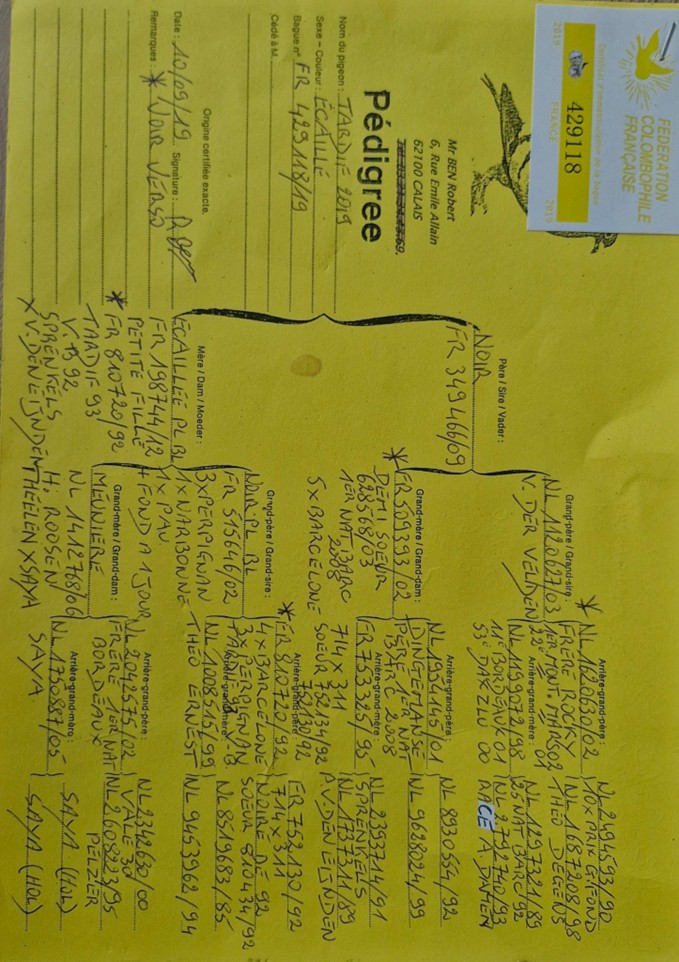 FEDERATION
COLOMBOPHILE
FRANÇAISE
429118
2019 FRANCE 2019
Mr BEN Robert
6, Rue Emile Allain
62100 CALAIS
Pédigree
Nom du pigeon : TARDIF 2019
Sexe – Couleur : ÉCAILLÉ
Bague n° FR 429118/19
Cédé à M.
Origine certifiée exacte.
Date : 10/09/19 Signature :
Remarques : * NOIR VERSO
Père / Sire / Vader :
NOIR
FR 349466/09
Mère / Dam / Moeder :
ÉCAILLÉE PL BL
FR 198744/12
PETITE FILLE
* FR 810720/92
TARDIF 93
V. B 92
SPRENKELS
X V. DEN EIJNDEN
Grand-père / Grand-sire :
NL 1120627/03
V. DER VELDEN
Grand-mère / Grand-dam :
* FR 509393/02
DEMI SOEUR
628568/03
1ER NAT BARC
2008
5 X BARCELONE
Grand-père / Grand-sire :
NOIR PL BL
FR 515646/02
3X PERPIGNAN
1X NARBONNE
1X PAU
4 FOND A 1 JOUR
Grand-mère / Grand-dam :
MEUNIERE
NL 1412768/06
H. ROOSEN
THEELEN X SAYA
Arrière-grand-père :
* NL 1120630/02
FRÈRE ROCKY
1ER MONT. MARS 02
22e 01
Arrière-grand-mère :
NL 1599072/98
11e BORDEAUX 01
53e DAX ZLU 00
Arrière-grand-père :
NL 1954145/01
DINGEMANSE
PERE 1ER NAT
BARC 2008
Arrière-grand-mère :
FR 753325/95
714 X 311
SOEUR 752134/92
752130/92
Arrière-grand-père :
* FR 810720/92
4 X BARCELONE
3X PERPIGNAN
Arrière-grand-mère :
NL 1008515/99
THEO ERNEST
Arrière-grand-père :
NL 2042575/02
FRÈRE 1ER NAT
BORDEAUX
Arrière-grand-mère :
NL 1750887/05
SAYA
NL 2494593/90
10X PRIX G. FOND
NL 1687208/98
THEO DEGENS
NL 1297321/89
25 NAT BARC/92
NL 2792740/93
RACE A. DAMEN
NL 8930554/92
NL 9638024/99
NL 2393714/91
SPRENKELS
NL 1737311/89
P. V. DEN EIJNDEN
FR 752130/92
714 X 311
NOIRE DE 92
SOEUR 810434/92
NL 8519683/85
NL 9453962/94
NL 2342630/00
VALE 30
NL 2608223/95
PELZER
SAYA (HOL)
SAYA (HOL)